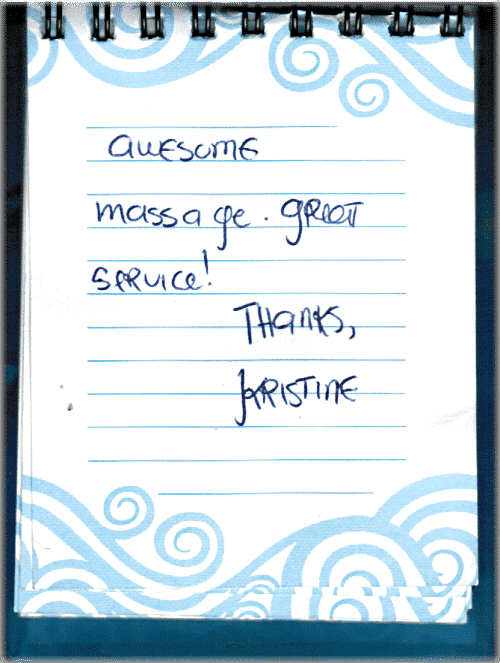 awesome
massage. great
service!
Thanks,
Kristine